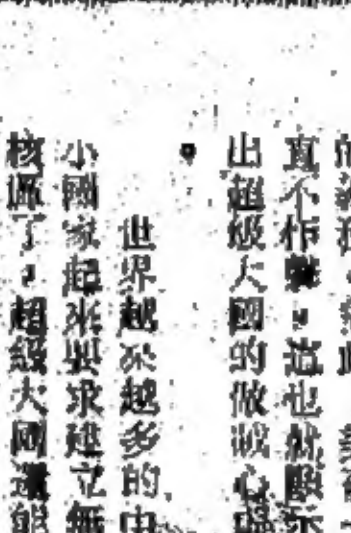 直不作聲，這也就顯示
出超級大國的做賊心
世界越來越多的中
小國家起來要求建立無
核區了，超級大國還能